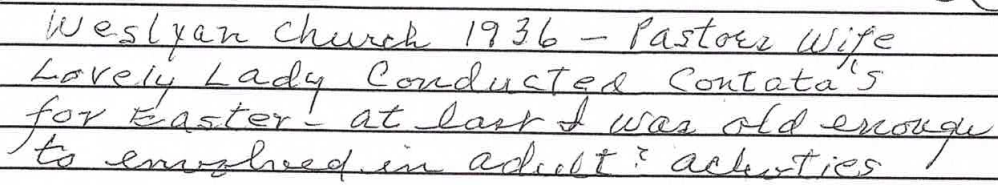 Weslyan Church 1936 - Pastors Wife
Lovely Lady Conducted Contata's
for Easter - at last I was old enough
to envolved in adult? activties